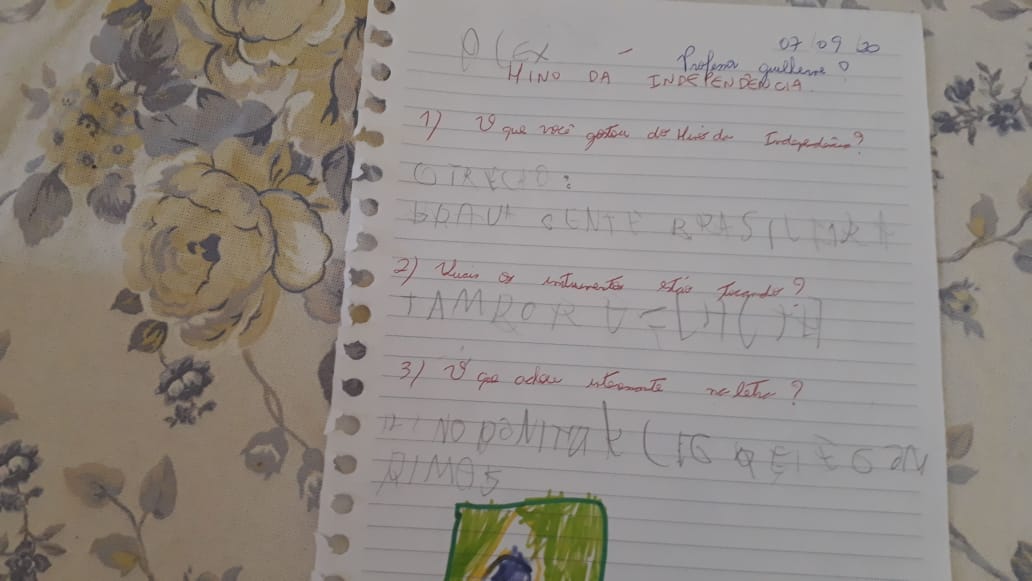 07/09/20
Professor Guilherme
HINO DA INDEPENDÊNCIA
1) O que você gostou do Hino da Independência?
O TRECHO:
BRAVA GENTE BRASILEIRA
2) Quais os instrumentos estão tocando?
TAMBOR
3) O que achou interessante na letra?
HINO BONITA